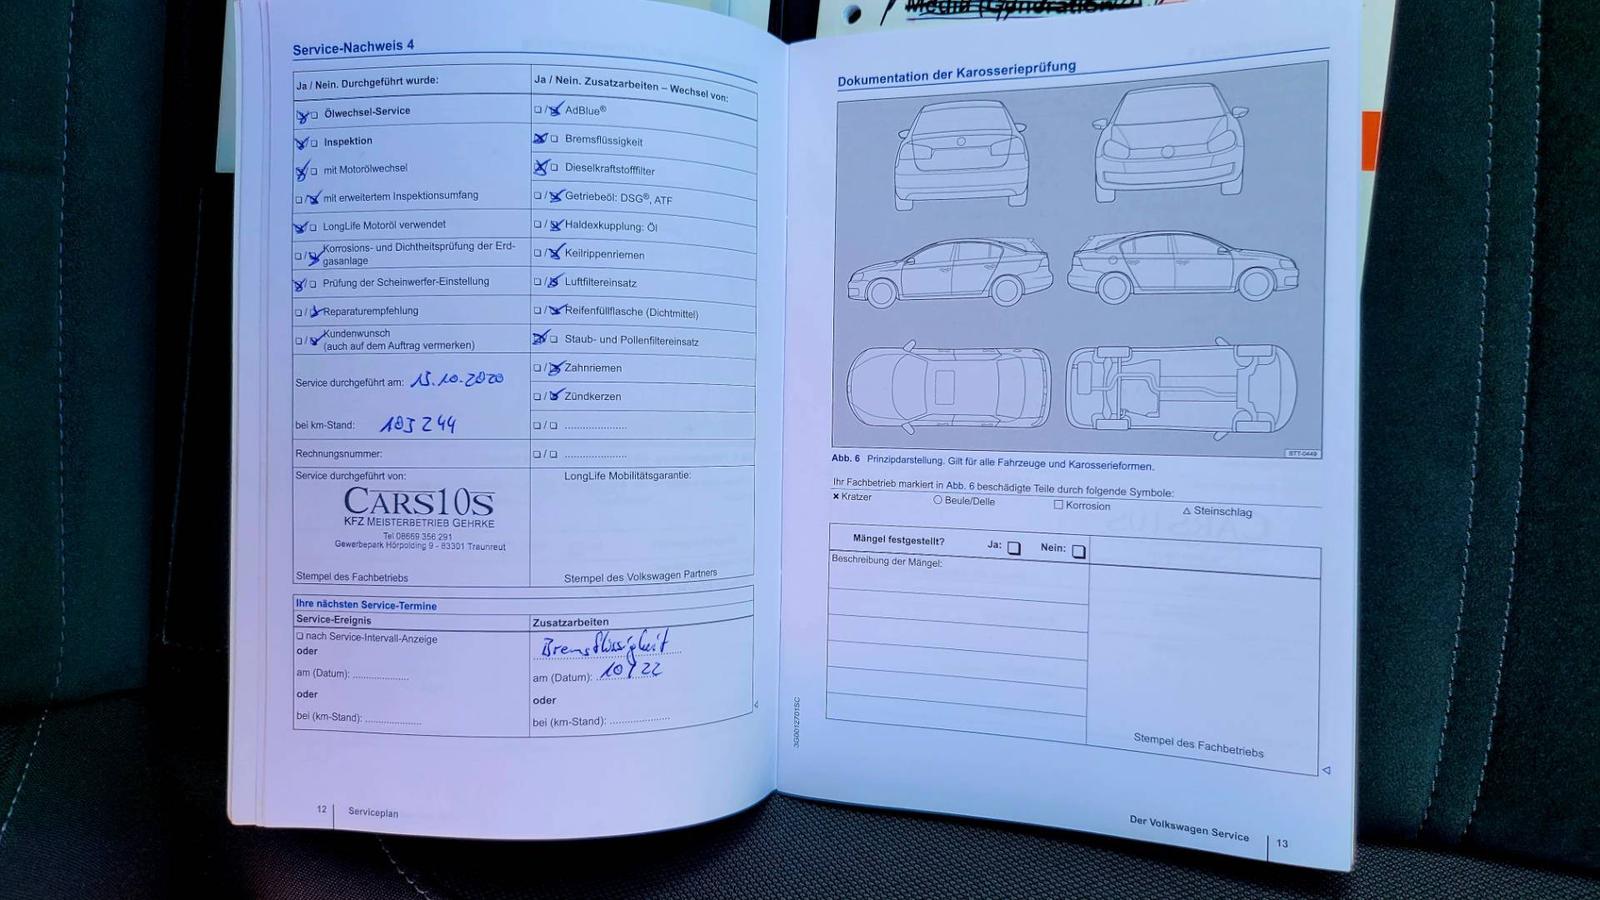 Media (Gyndration
Service-Nachweis 4
Ja / Nein. Durchgeführt wurde:
Ölwechsel-Service
Inspektion
mit Motorölwechsel
mit erweitertem Inspektionsumfang
LongLife Motoröl verwendet
Korrosions- und Dichtheitsprüfung der Erd-
gasanlage
Prüfung der Scheinwerfer-Einstellung
Reparaturempfehlung
Kundenwunsch
(auch auf dem Auftrag vermerken)
Service durchgeführt am: 15.10.2020
bei km-Stand: 103244
Rechnungsnummer:
Service durchgeführt von:
CARS10S
KFZ MEISTERBETRIEB GEHRKE
Tel 08669 356 291
Gewerbepark Hörpolding 9 - 83301 Traunreut
Stempel des Fachbetriebs
Ja / Nein. Zusatzarbeiten – Wechsel von:
AdBlue®
Bremsflüssigkeit
Dieselkraftstofffilter
Getriebeöl: DSG®, ATF
Haldexkupplung: Öl
Keilrippenriemen
Luftfiltereinsatz
Reifenfüllflasche (Dichtmittel)
Staub- und Pollenfiltereinsatz
Zahnriemen
Zündkerzen
LongLife Mobilitätsgarantie:
Stempel des Volkswagen Partners
Ihre nächsten Service-Termine
Service-Ereignis
nach Service-Intervall-Anzeige
oder
am (Datum): ....................
oder
bei (km-Stand): ....................
Zusatzarbeiten
Bremsflüssigkeit
am (Datum): 10/22
oder
bei (km-Stand): ....................
12 Serviceplan
Dokumentation der Karosserieprüfung
STT-0449
Abb. 6 Prinzipdarstellung. Gilt für alle Fahrzeuge und Karosserieformen.
Ihr Fachbetrieb markiert in Abb. 6 beschädigte Teile durch folgende Symbole:
× Kratzer ○ Beule/Delle □ Korrosion △ Steinschlag
Mängel festgestellt? Ja: Nein:
Beschreibung der Mängel:
Stempel des Fachbetriebs
3G0012701SC
Der Volkswagen Service 13